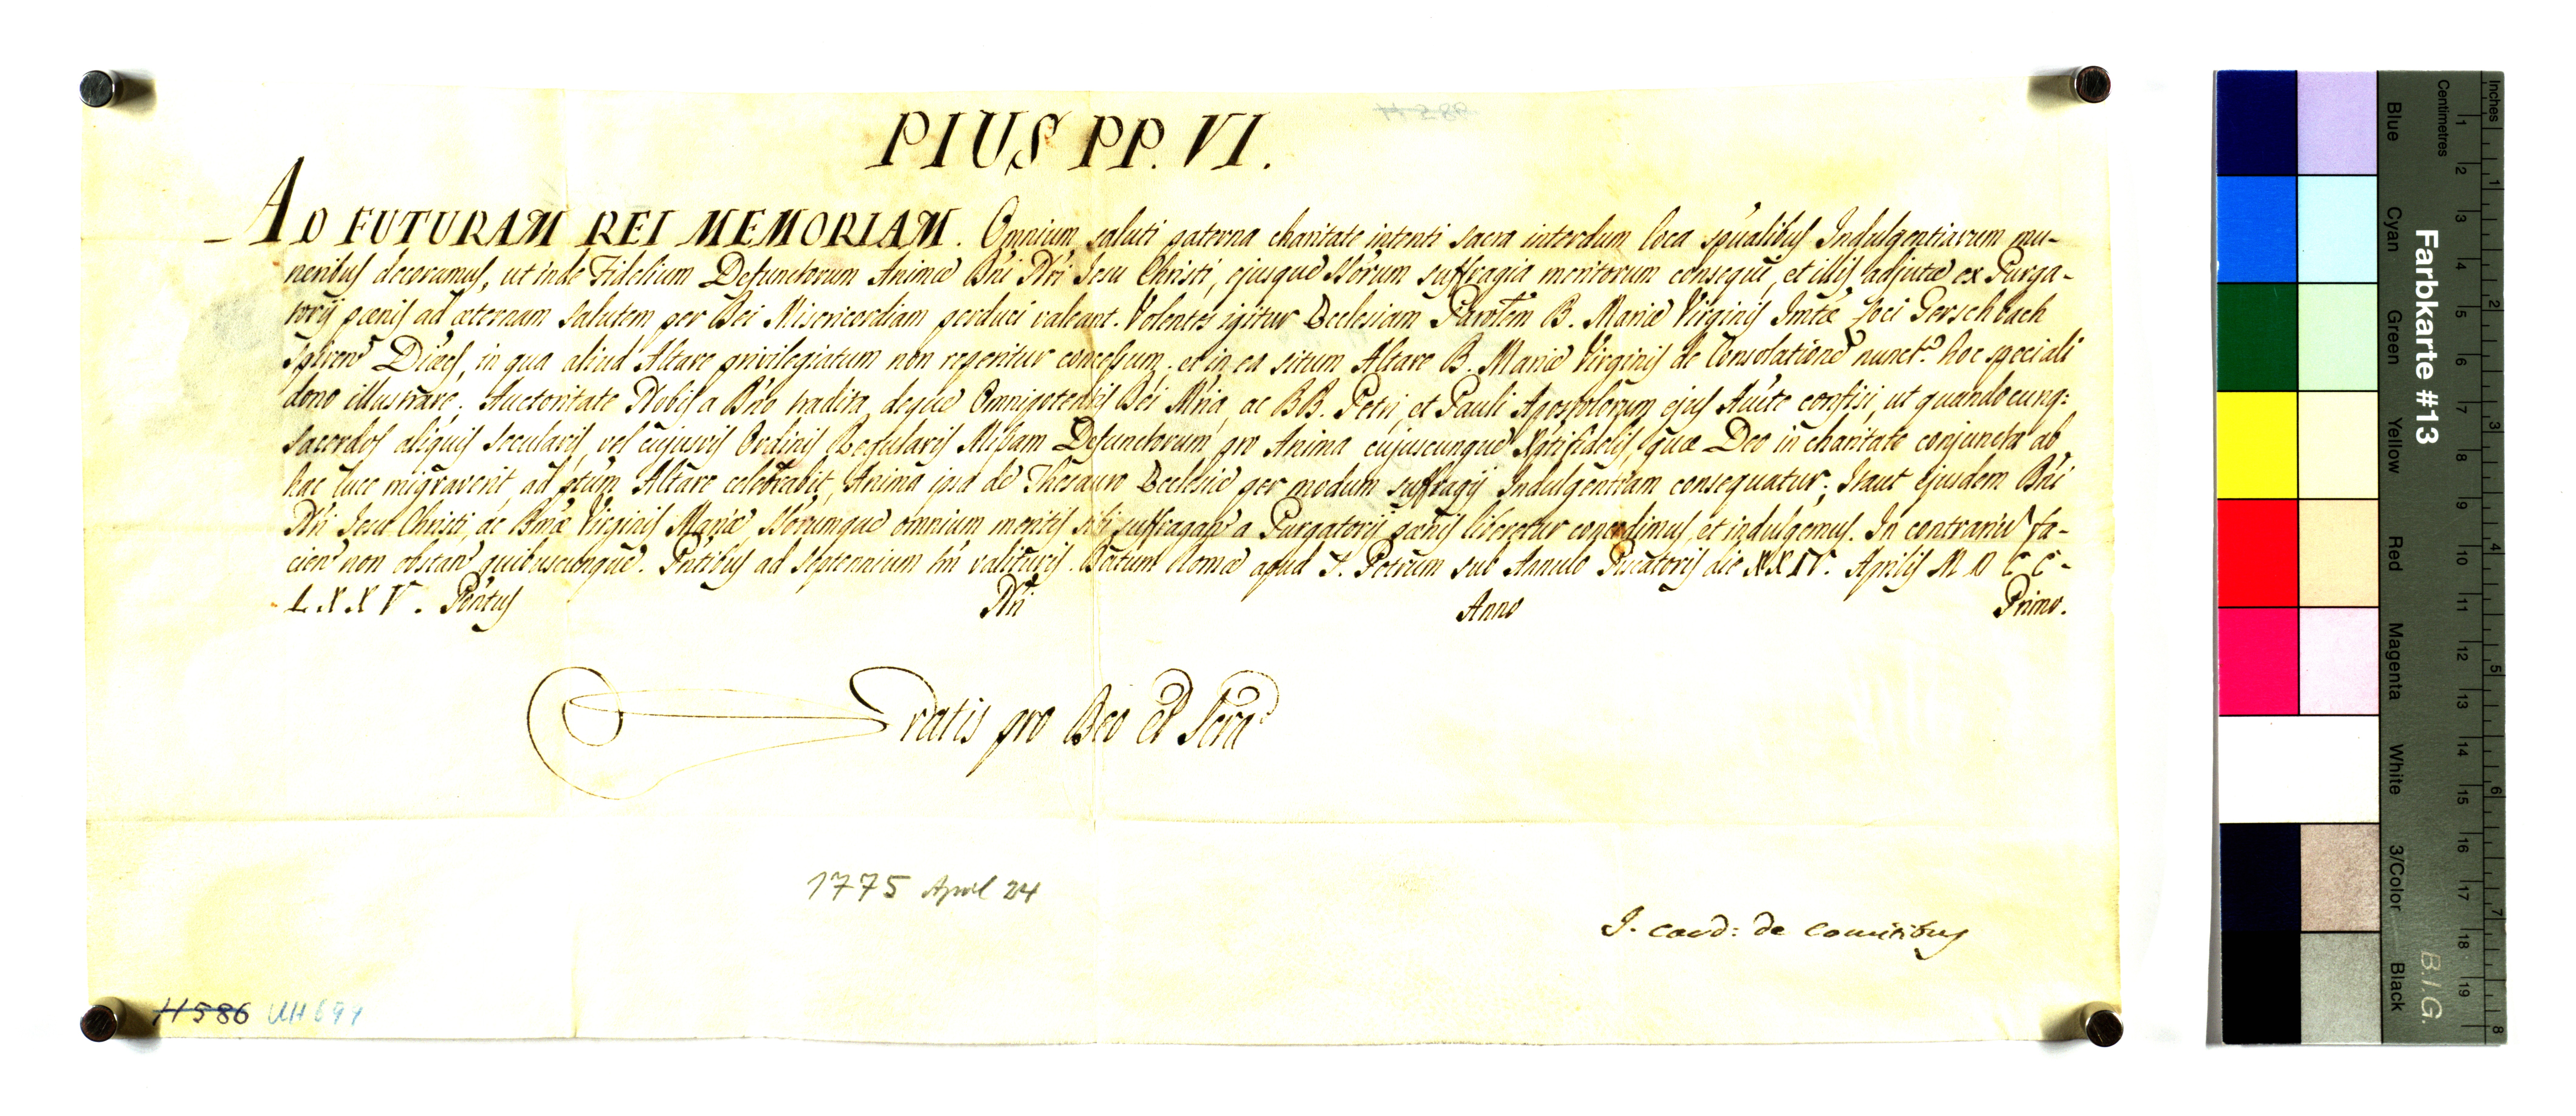 PIUS PP. VI.
AD FUTURAM REI MEMORIAM. Omnium saluti paterna charitate intenti sacra interdum loca spũalibus Indulgentiarum mu-
neribus decoramus, ut inde Fidelium Defunctorum Animæ Dñi Ñri Jesu Christi, ejusque SSõrum suffragia meritorum consequi, et illis adjutæ ex Purga-
torij pœnis ad æternam salutem per Dei Misericordiam perduci valeant. Volentes igitur Ecclesiam Parõlem B. Mariæ Virginis Loci Gerschbach
Spiren Diœcs, in qua aliud Altare privilegiatum non reperitur concessum, et in ea situm Altare B. Mariæ Virginis de Consolatione nunct.º hoc speciali
dono illustrare; Auctoritate Nobis a Dño tradita, deque Omnipotentis Dei Mĩa, ac BB. Petri, et Pauli Apostolorum ejus Auĉte confisi, ut quandocunq:
Sacerdos aliquis Secularis, vel cujusvis Ordinis Regularis Missam Defunctorum, pro Anima cujuscunque Xp̃tifidelis, quæ Deo in charitate conjuncta ab
hac luce migraverit, ad p̃tum Altare celebrabit, Anima ipsa de Thesauro Ecclesiæ per modum suffragij Indulgentiam consequatur; Itaut ejusdem Dñi
Ñri Jesu Christi, ac Bm̃æ Virginis Mariæ, SSõrumque omnium meritis sibi suffragan a Purgatorij pœnis liberetur concedimus, et indulgemus. In contrarium fa-
cien non obstan quibuscunque. Pñtibus ad Septennium tm̃ valituris. Datum Romæ apud S. Petrum sub Annulo Piscatoris die XXIV. Aprilis M D C C-
L X X V. Pontus Ñri Anno Primo.
Gratis pro Deo et Scra
1775 April 24
J. Card: de Comitibus
H 586 UH 694
H 586
Farbkarte #13
B.I.G.
Inches 1 2 3 4 5 6 7 8
Centimetres 1 2 3 4 5 6 7 8 9 10 11 12 13 14 15 16 17 18 19
Blue Cyan Green Yellow Red Magenta White 3/Color Black